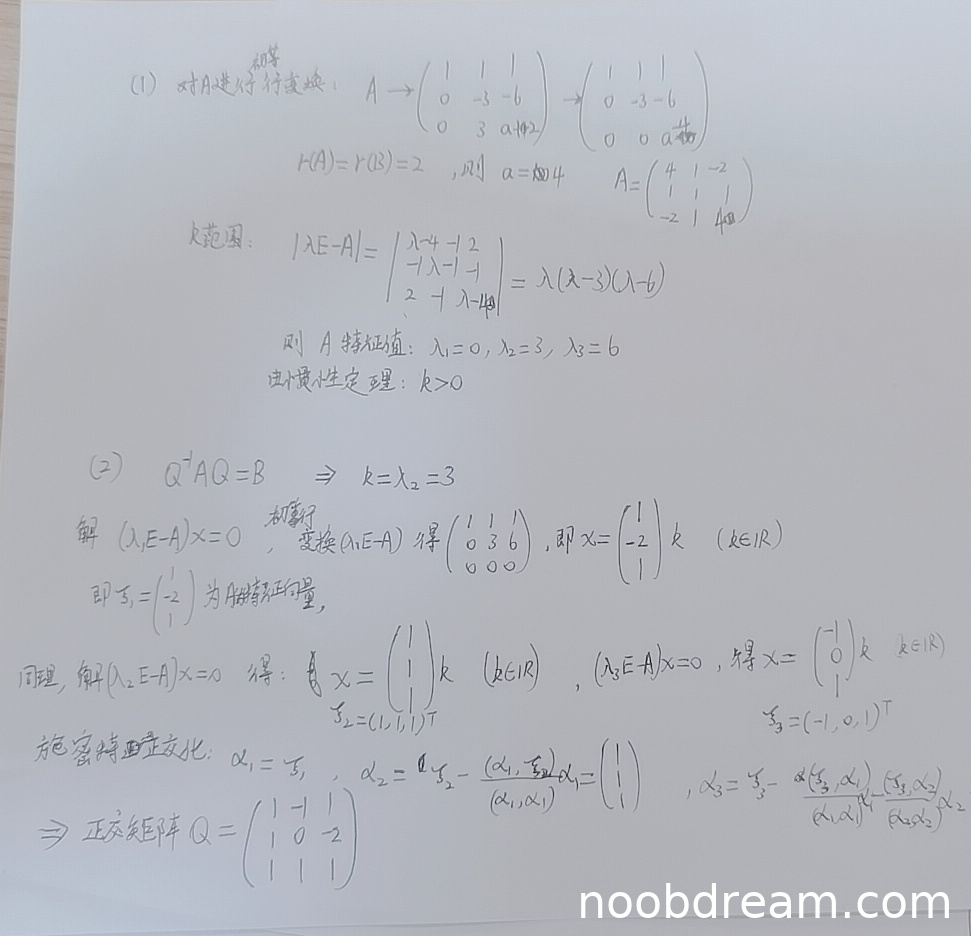 (1) 对A进行初等行变换: A → (1 1 1; 0 -3 -6; 0 3 a+2) → (1 1 1; 0 -3 -6; 0 0 a-4)
r(A)=r(B)=2 , 则 a=4 A= (4 1 -2; 1 1 1; -2 1 4)
k范围: |λE-A| = |λ-4 -1 2; -1 λ-1 -1; 2 -1 λ-4| = λ(λ-3)(λ-6)
则 A 特征值: λ₁=0, λ₂=3, λ₃=6
由惯性定理: k>0
(2) Q⁻¹AQ=B ⇒ k=λ₂=3
解 (λ₁E-A)x=0 , 初等行变换(λ₁E-A) 得 (1 1 1; 0 3 6; 0 0 0) , 即 x= (1; -2; 1) k (k∈R)
即 ξ₁= (1; -2; 1) 为A的特征向量,
同理, 解(λ₂E-A)x=0 得: x= (1; 1; 1) k (k∈R) , (λ₃E-A)x=0 , 得 x= (-1; 0; 1) k (k∈R)
ξ₂=(1,1,1)ᵀ ξ₃=(-1,0,1)ᵀ
施密特正交化: α₁=ξ₁ , α₂= ξ₂ - (α₁,ξ₂)/(α₁,α₁) α₁ = (1; 1; 1) , α₃= ξ₃ - (ξ₃,α₁)/(α₁,α₁) α₁ - (ξ₃,α₂)/(α₂,α₂) α₂
⇒ 正交矩阵 Q= (1 -1 1; 1 0 -2; 1 1 1)
noobdream.com